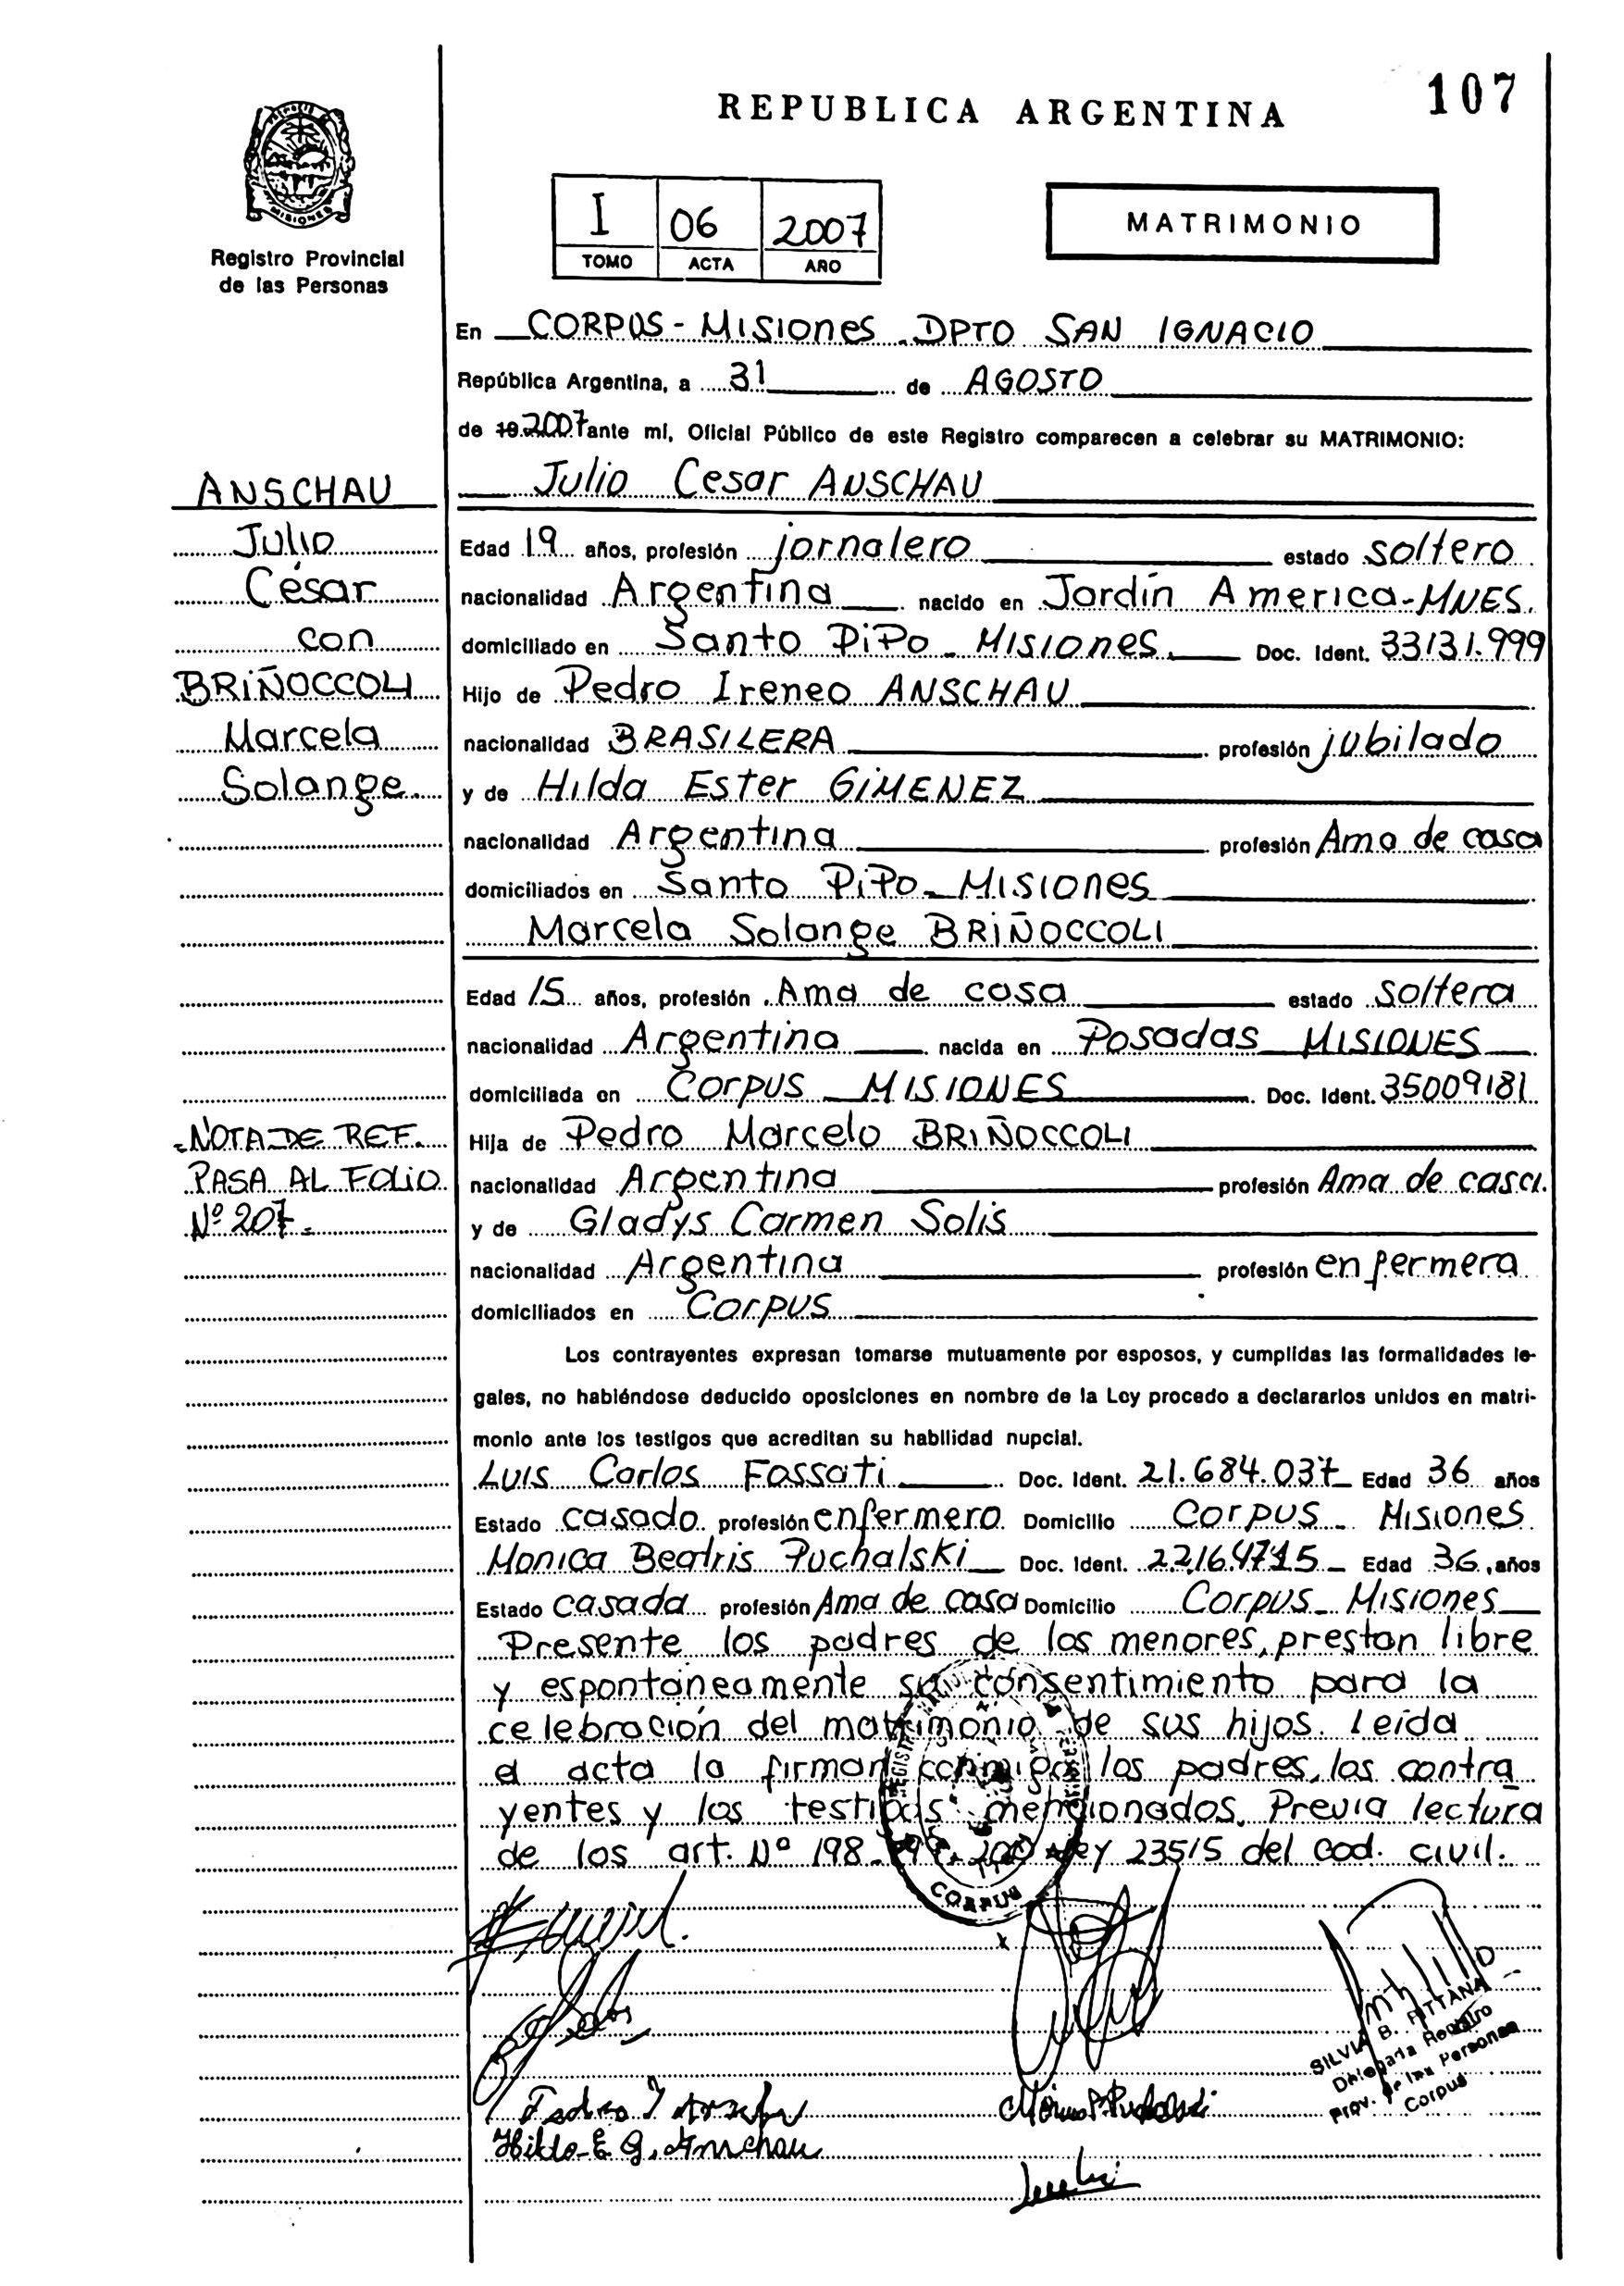 107
REPUBLICA ARGENTINA
MISIONES
Registro Provincial
de las Personas
I 06 2007
TOMO ACTA AÑO
MATRIMONIO
En CORPUS - MISIONES - DPTO SAN IGNACIO
República Argentina, a 31 de AGOSTO
de 19 2007 ante mí, Oficial Público de este Registro comparecen a celebrar su MATRIMONIO:
ANSCHAU
Julio
César
con
BRIÑOCCOLI
Marcela
Solange.
Julio Cesar ANSCHAU
Edad 19 años, profesión jornalero estado soltero
nacionalidad Argentina nacido en Jardín America - MNES.
domiciliado en Santo PiPo - Misiones. Doc. Ident. 33131.999
Hijo de Pedro Ireneo ANSCHAU
nacionalidad BRASILERA profesión jubilado
y de Hilda Ester GiMENEZ
nacionalidad Argentina profesión Ama de casa
domiciliados en Santo PiPo - Misiones
Marcela Solange BRIÑOCCOLI
Edad 15 años, profesión Ama de casa estado soltera
nacionalidad Argentina nacida en Posadas MISIONES
domiciliada en Corpus - MISIONES Doc. Ident. 35009181
Hija de Pedro Marcelo BRIÑOCCOLI
nacionalidad Argentina profesión Ama de casa.
y de Gladys Carmen Solis
nacionalidad Argentina profesión enfermera
domiciliados en Corpus
- NOTA DE REF.
PASA AL FOLIO
Nº 207.-
Los contrayentes expresan tomarse mutuamente por esposos, y cumplidas las formalidades le-
gales, no habiéndose deducido oposiciones en nombre de la Ley procedo a declararlos unidos en matri-
monio ante los testigos que acreditan su habilidad nupcial.
Luis Carlos Fossati Doc. Ident. 21.684.037 Edad 36 años
Estado casado profesión enfermero Domicilio Corpus - Misiones
Monica Beatris Puchalski Doc. Ident. 22164715 Edad 36 años
Estado casada profesión Ama de casa Domicilio Corpus - Misiones
Presente los padres de los menores, prestan libre
y espontáneamente su consentimiento para la
celebración del matrimonio de sus hijos. Leída
el acta la firman conmigo los padres, los contra
yentes y los testigos mencionados. Previa lectura
de los art. Nº 198 - 199 - 200 Ley 23515 del cod. civil.
CORPUS
SILVIA B. PITTANA
Delegada Registro
Prov. de las Personas
Corpus
Hilda E G. Anschau